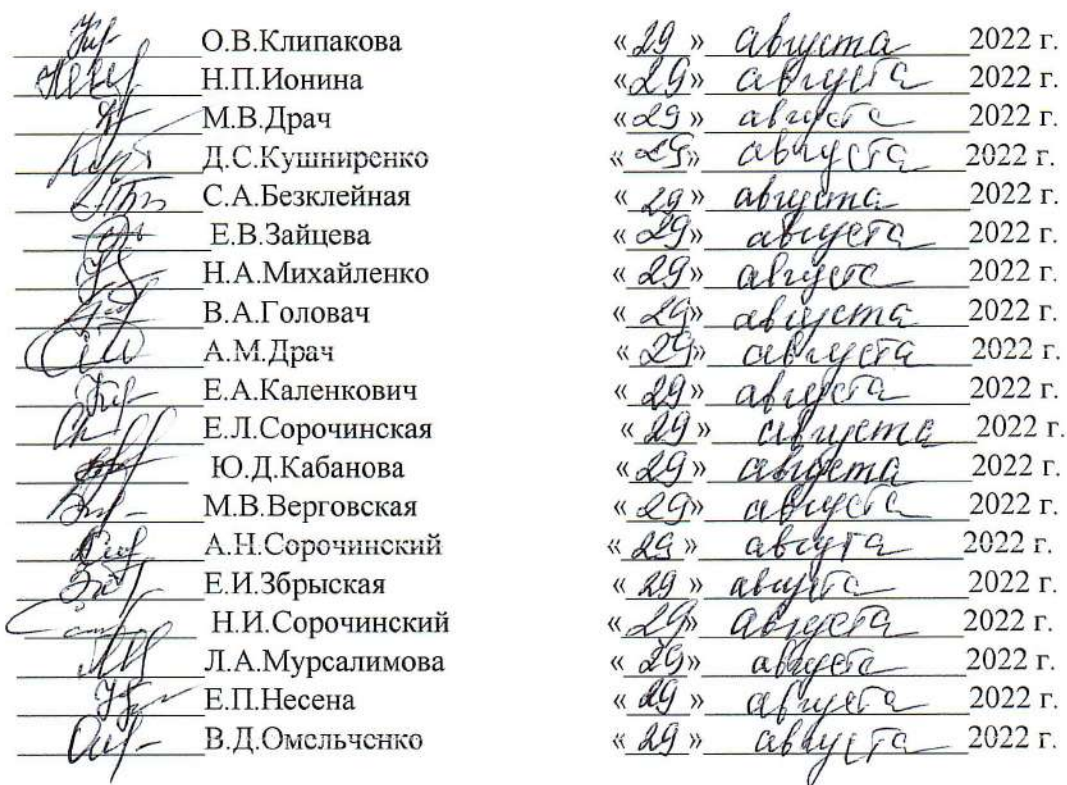 О.В.Клипакова « 29 » августа 2022 г.
Н.П.Ионина « 29 » августа 2022 г.
М.В.Драч « 29 » августа 2022 г.
Д.С.Кушниренко « 29 » августа 2022 г.
С.А.Безклейная « 29 » августа 2022 г.
Е.В.Зайцева « 29 » августа 2022 г.
Н.А.Михайленко « 29 » августа 2022 г.
В.А.Головач « 29 » августа 2022 г.
А.М.Драч « 29 » августа 2022 г.
Е.А.Каленкович « 29 » августа 2022 г.
Е.Л.Сорочинская « 29 » августа 2022 г.
Ю.Д.Кабанова « 29 » августа 2022 г.
М.В.Верговская « 29 » августа 2022 г.
А.Н.Сорочинский « 29 » августа 2022 г.
Е.И.Збрыская « 29 » августа 2022 г.
Н.И.Сорочинский « 29 » августа 2022 г.
Л.А.Мурсалимова « 29 » августа 2022 г.
Е.П.Несена « 29 » августа 2022 г.
В.Д.Омельченко « 29 » августа 2022 г.